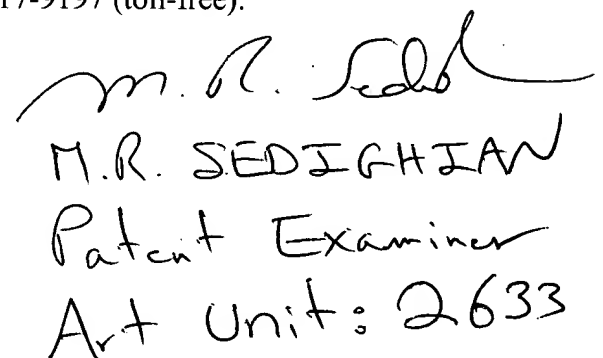 17-9197 (toll-free).
M. R. Sedigh
M.R. SEDIGHIAN
Patent Examiner
Art Unit: 2633